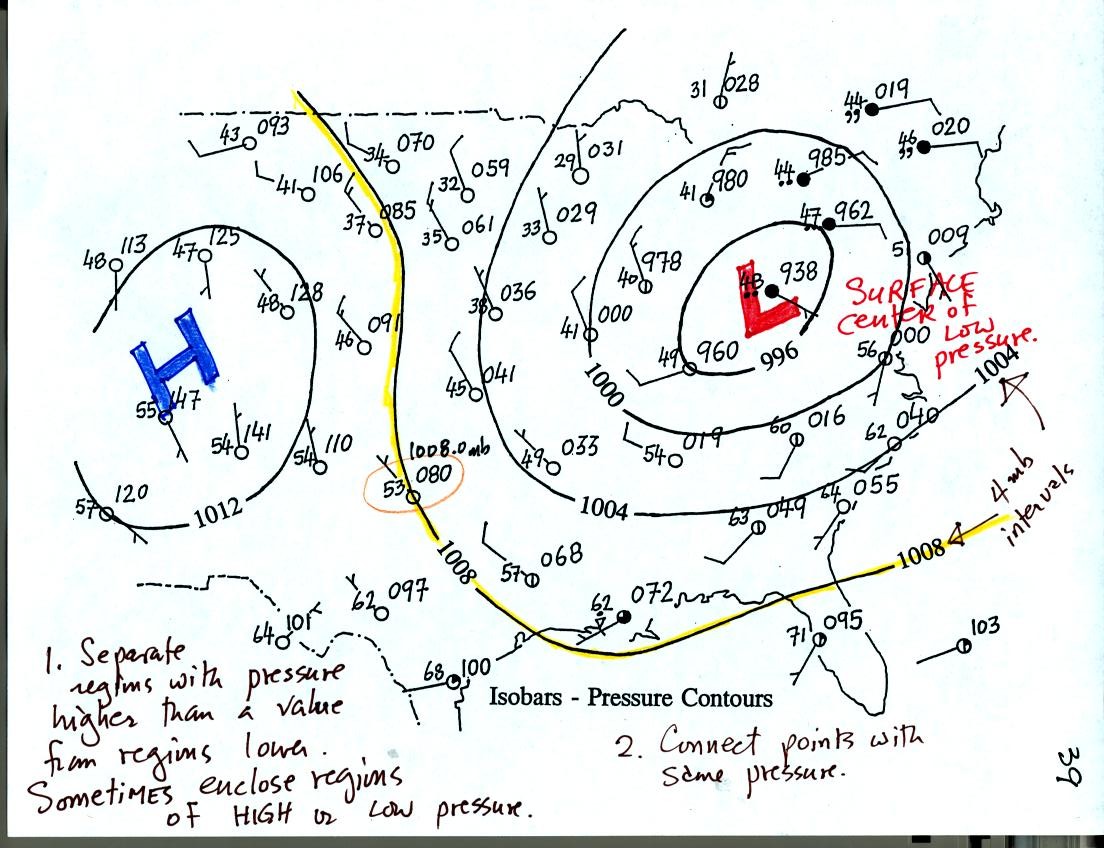 31 028
44 019
46 020
43 093
34 070
29 031
41 106
32 059
41 980
44 985
37 085
35 061
33 029
47 962
48 113
47 125
40 978
5 009
48 128
38 036
48 938
SURFACE
center of
LOW
pressure.
46 091
41 000
56 000
L
H
49 960
996
1004
1000
45 041
55 147
54 141
54 110
1008.0 mb
53 080
49 033
54 019
60 016
62 040
4 mb
intervals
57 120
1012
1004
63 049
64 055
1008
57 068
1008
62 097
62 072
64 101
71 095
103
68 100
Isobars - Pressure Contours
1. Separate
regions with pressure
higher than a value
from regions lower.
SometiMES enclose regions
OF HIGH or LOW pressure.
2. Connect points with
same pressure.
39